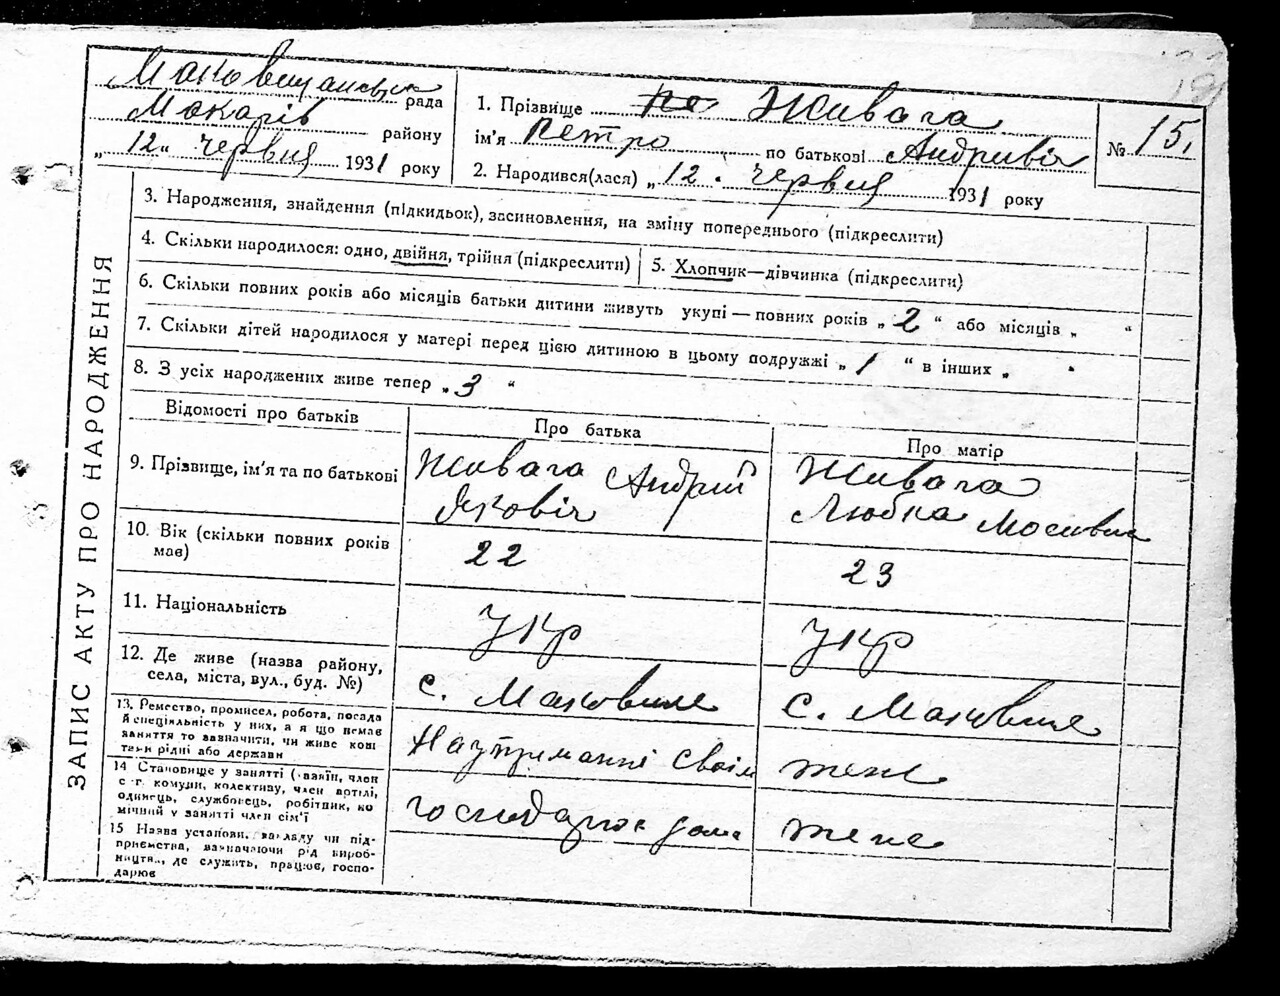 Маковищанська рада
Макарів району
„ 12 " червня 1931 року
1. Прізвище Живага
ім'я Петро по батькові Андривіч
2. Народився(лася) „ 12 . червня 1931 року
№ 15.
ЗАПИС АКТУ ПРО НАРОДЖЕННЯ
3. Народження, знайдення (підкидьок), засиновлення, на зміну попереднього (підкреслити)
4. Скільки народилося: одно, двійня, трійня (підкреслити)
5. Хлопчик—дівчинка (підкреслити)
6. Скільки повних років або місяців батьки дитини живуть укупі — повних років „ 2 " або місяців „ "
7. Скільки дітей народилося у матері перед цією дитиною в цьому подружжі „ 1 " в інших „ "
8. З усіх народжених живе тепер „ 3 "
Відомості про батьків
Про батька
Про матір
9. Прізвище, ім'я та по батькові
Живага Андрий
Яковіч
Живага
Любка Мосивна
10. Вік (скільки повних років
має)
22
23
11. Національність
Укр
Укр
12. Де живе (назва району,
села, міста, вул., буд. №)
с. Маковище
с. Маковище
13. Ремество, промисел, робота, посада
й спеціяльність у них, а я що немає
заняття то зазначити, чи живе кош
теми рідні або держави
На утриманні своім
тене
14 Становище у занятті (хазяїн, член
с-г. комуни, колективу, член артілі,
одинець, службовець, робітник, по
мічний у занятті член сім'ї
господарює дома
тене
15 Назва установи, закладу чи під-
приємства, зазначаючи рід вироб-
ництва, де служить, працює, госпо-
дарює